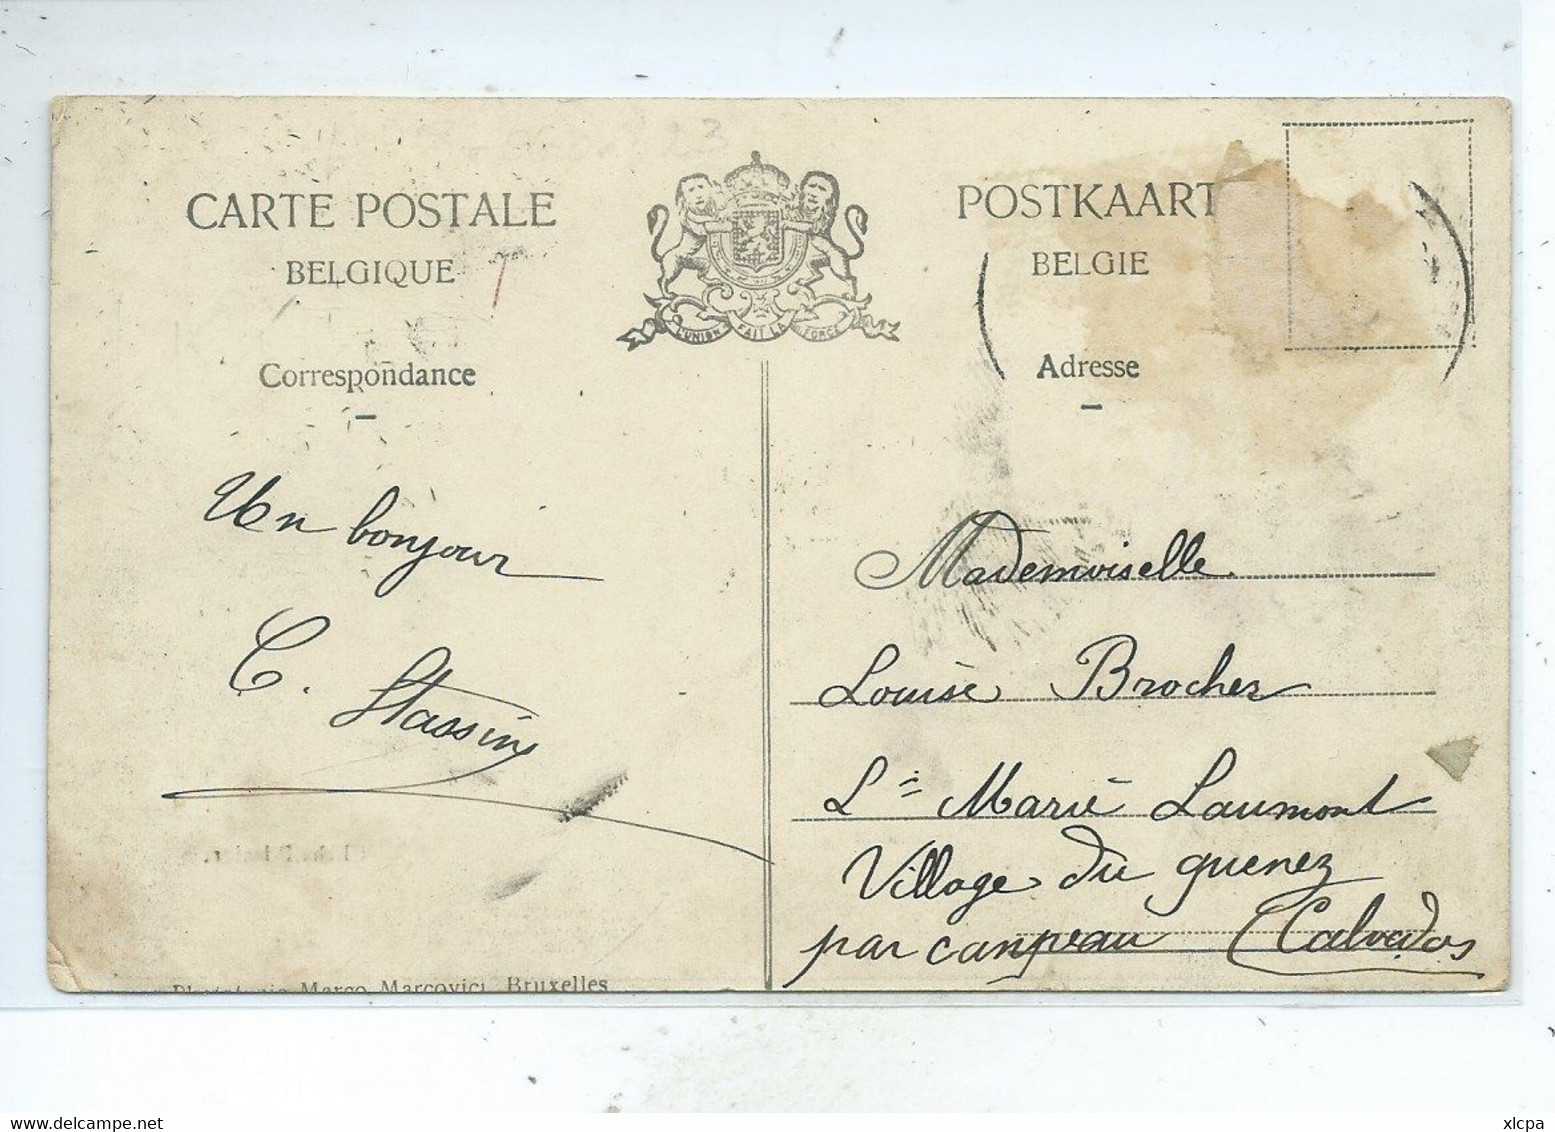 CARTE POSTALE
BELGIQUE
Correspondance
L'UNION FAIT LA FORCE
POSTKAART
BELGIE
Adresse
Un bonjour
C. Stassin
Mademoiselle
Louise Brocher
Marie Laumont
Village du guenez
par campeau (Calvados
Marco Marcovici, Bruxelles
delcampe.net
xlcpa